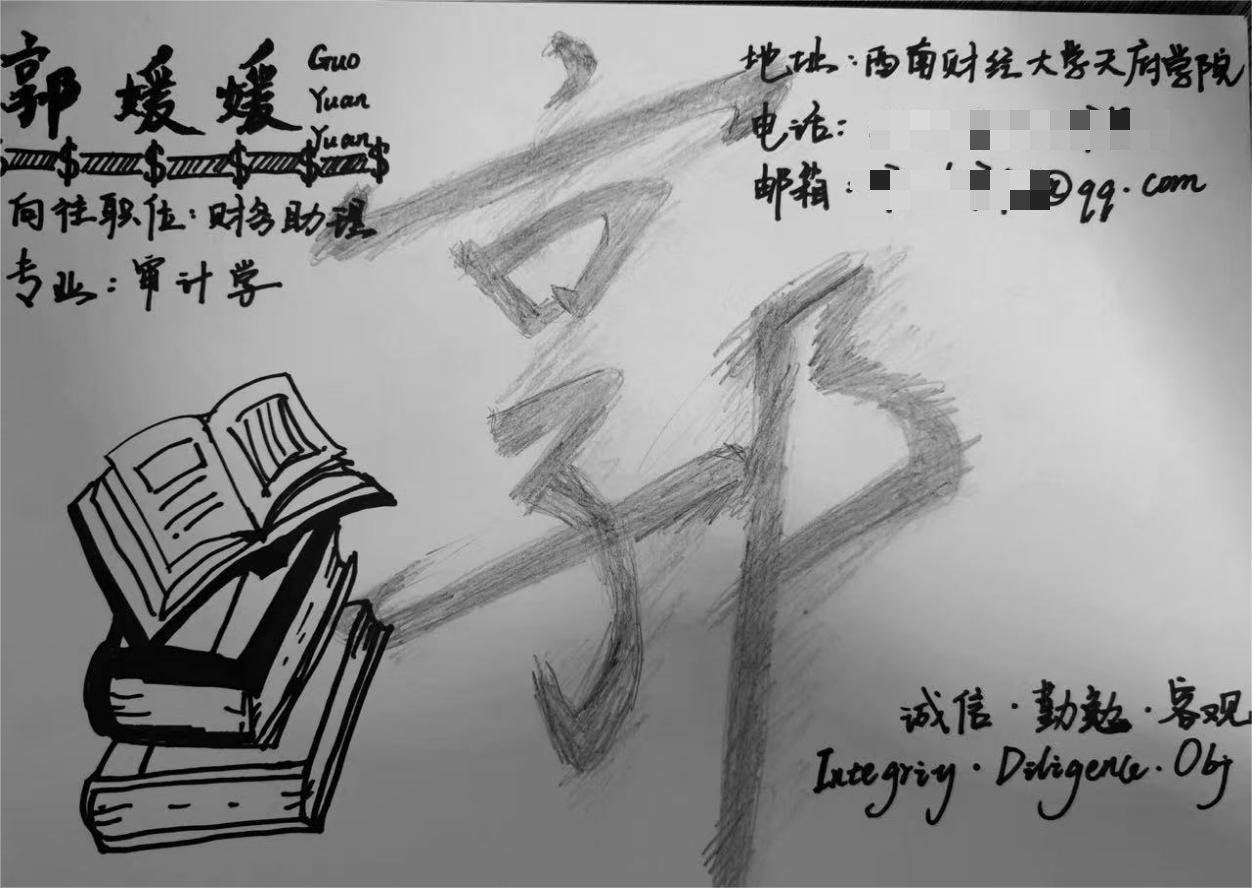 郭媛媛
Guo
Yuan
Yuan
向往职位：财务助理
专业：审计学
地址：西南财经大学天府学院
电话：
邮箱：@qq.com
郭
诚信·勤勉·客观
Integrity·Diligence·Obj